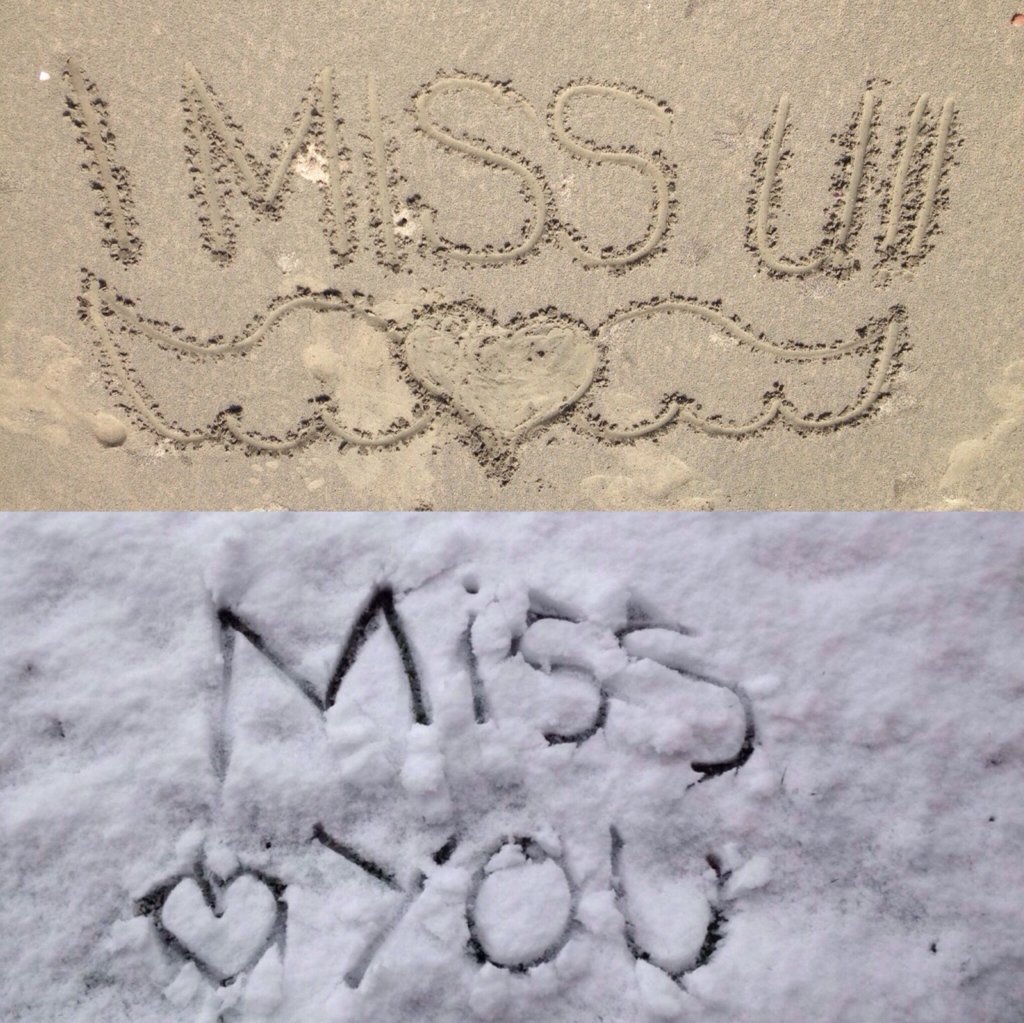 I MISS U!!
MiSS
YOU